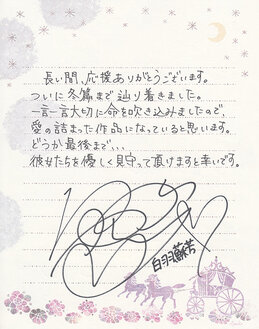 長い間、応援ありがとうございます。
ついに冬篇まで辿り着きました。
一言一言大切に命を吹き込みましたので、
愛の詰まった作品になっていると思います。
どうか最後まで、、
彼女たちを優しく見守って頂けますと幸いです。